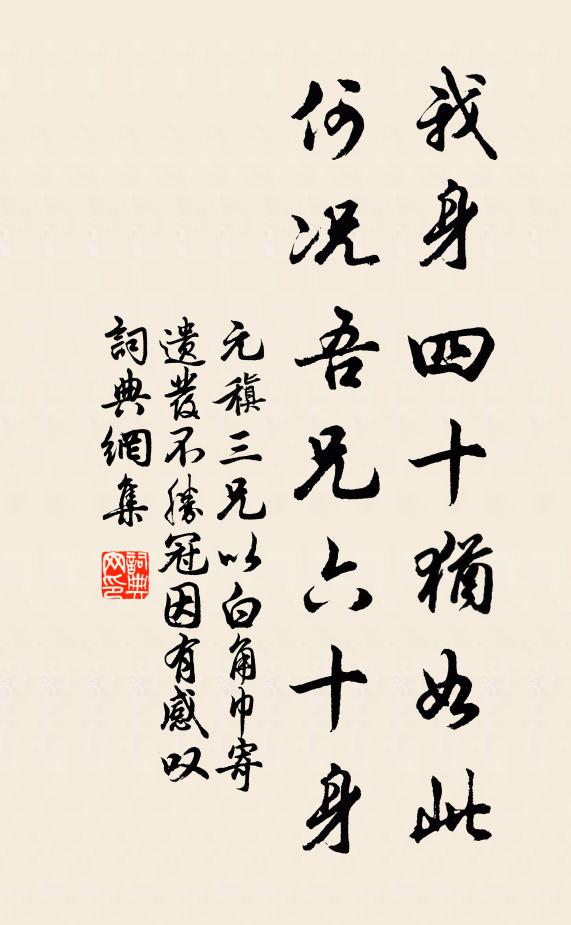 我身四十猶如此
何况吾兄六十身
元稹三兄以白角巾寄
遺發不勝冠因有感叹
詞典網集
詞典网印